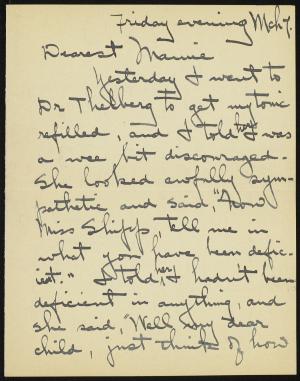 Friday evening Mch 7.
Dearest Mamie
Yesterday I went to
Dr Thelberg to get my tonic
refilled, and I told her I was
a wee bit discouraged.
She looked awfully sym-
pathetic and said, "Now
Miss Shipp, tell me in
what you have been defic-
ient." I told her I hadn't been
deficient in anything, and
she said, "Well my dear
child, just think of how